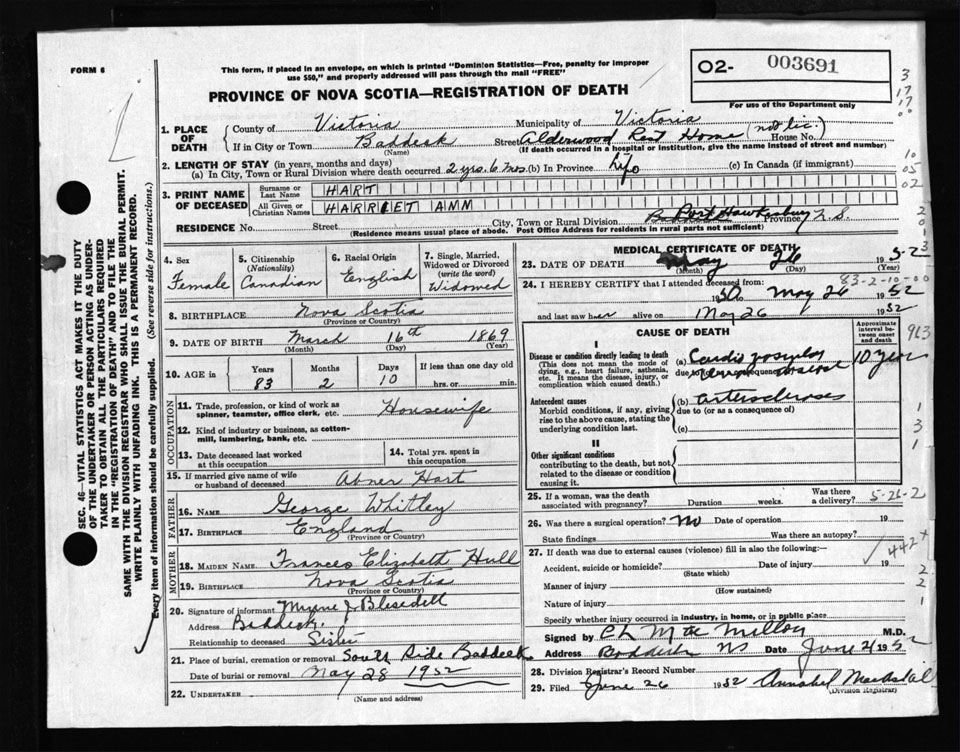 FORM 6
This form, if placed in an envelope, on which is printed "Dominion Statistics—Free, penalty for improper
use $50," and properly addressed will pass through the mail "FREE"
02- 003691
For use of the Department only
PROVINCE OF NOVA SCOTIA—REGISTRATION OF DEATH
1. PLACE OF DEATH
County of Victoria Municipality of Victoria
If in City or Town Baddeck Street Alderwood Rest Home (not lic.) House No.
(Name) (If death occurred in a hospital or institution, give the name instead of street and number)
2. LENGTH OF STAY (in years, months and days)
(a) In City, Town or Rural Division where death occurred 2 yrs. 6 mos. (b) In Province Life (c) In Canada (if immigrant)
3. PRINT NAME OF DECEASED
Surname or Last Name HART
All Given or Christian Names HARRIET AMM
RESIDENCE No. Street City, Town or Rural Division Port Hawkesbury Province N.S.
(Residence means usual place of abode. Post Office Address for residents in rural parts not sufficient)
4. Sex Female
5. Citizenship (Nationality) Canadian
6. Racial Origin English
7. Single, Married, Widowed or Divorced (write the word) Widowed
8. BIRTHPLACE Nova Scotia
(Province or Country)
9. DATE OF BIRTH March 16th 1869
(Month) (Day) (Year)
10. AGE in Years Months Days If less than one day old
83 2 10 hrs. or min.
OCCUPATION
11. Trade, profession, or kind of work as spinner, teamster, office clerk, etc. Housewife
12. Kind of industry or business, as cotton-mill, lumbering, bank, etc.
13. Date deceased last worked at this occupation
14. Total yrs. spent in this occupation
15. If married give name of wife or husband of deceased Abner Hart
FATHER
16. NAME George Whitley
17. BIRTHPLACE England
(Province or Country)
MOTHER
18. MAIDEN NAME Frances Elizabeth Hull
19. BIRTHPLACE Nova Scotia
(Province or Country)
20. Signature of informant J. Blesedell
Address Baddeck.
Relationship to deceased Sister
21. Place of burial, cremation or removal South Side Baddeck
Date of burial or removal May 28 1952
22. UNDERTAKER
(Name and address)
MEDICAL CERTIFICATE OF DEATH
23. DATE OF DEATH May 26 1952
(Month) (Day) (Year)
83-2-10-00
24. I HEREBY CERTIFY that I attended deceased from:
1950 May 26 1952
and last saw her alive on May 26 1952
CAUSE OF DEATH
Approximate interval between onset and death
I
Disease or condition directly leading to death
(This does not mean the mode of dying, e.g., heart failure, asthenia, etc. It means the disease, injury, or complication which caused death.)
(a) Cardio 10 years
due to (or as a consequence of)
Antecedent causes
Morbid conditions, if any, giving rise to the above cause, stating the underlying condition last.
(b) arterosclerosis
due to (or as a consequence of)
(c)
II
Other significant conditions
contributing to the death, but not related to the disease or condition causing it.
25. If a woman, was the death associated with pregnancy? Duration weeks. Was there a delivery? 5-26-2
26. Was there a surgical operation? No Date of operation 19
State findings Was there an autopsy?
27. If death was due to external causes (violence) fill in also the following:
Accident, suicide or homicide? Date of injury 19
(State which)
Manner of injury
(How sustained)
Nature of injury
Specify whether injury occurred in industry, in home, or in public place
Signed by C L MacMillan M.D.
Address Baddeck NS Date June 21 1952
28. Division Registrar's Record Number
29. Filed June 26 1952 Annabel
(Division Registrar)
SEC. 46—VITAL STATISTICS ACT MAKES IT THE DUTY
OF THE UNDERTAKER OR PERSON ACTING AS UNDER-
TAKER TO OBTAIN ALL THE PARTICULARS REQUIRED
IN THE "REGISTRATION OF DEATH" AND TO FILE THE
SAME WITH THE DIVISION REGISTRAR WHO SHALL ISSUE THE BURIAL PERMIT.
WRITE PLAINLY WITH UNFADING INK. THIS IS A PERMANENT RECORD.
Every item of information should be carefully supplied. (See reverse side for instructions.)